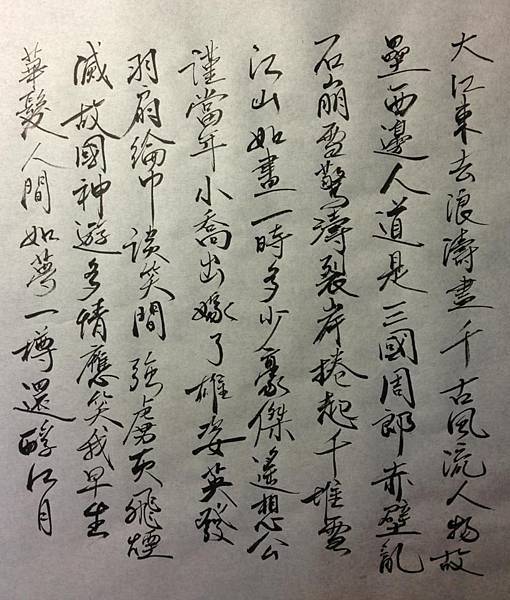 大江東去浪濤盡千古風流人物故
壘西邊人道是三國周郎赤壁亂
石崩雪驚濤裂岸捲起千堆雪
江山如畫一時多少豪傑遙想公
謹當年小喬出嫁了雄姿英發
羽扇綸巾談笑間強虜灰飛煙
滅故國神遊多情應笑我早生
華髮人間如夢一樽還酹江月